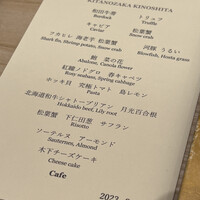 KITANOZAKA KINOSHITA
和田牛蒡 トリュフ
Burdock Truffle
キャビア 松葉蟹
Caviar Snow crab
フカヒレ 海老芋 松葉蟹 河豚 うるい
Shark fin, Shrimp potato, Snow crab Blowfish, Hosta grass
鮑 菜の花
Abalone, Canola flower
紅瞳ノドグロ 春キャベツ
Rosy seabass, Spring cabbage
ホッキ貝 究極トマト 島レモン
Pasta
北海道和牛シャトーブリアン 月光百合根
Hokkaido beef, Lily root
松葉蟹 下仁田葱 サフラン
Risotto
ソーテルヌ アーモンド
Sauternes, Almond
木下チーズケーキ
Cheese cake
Cafe
2022